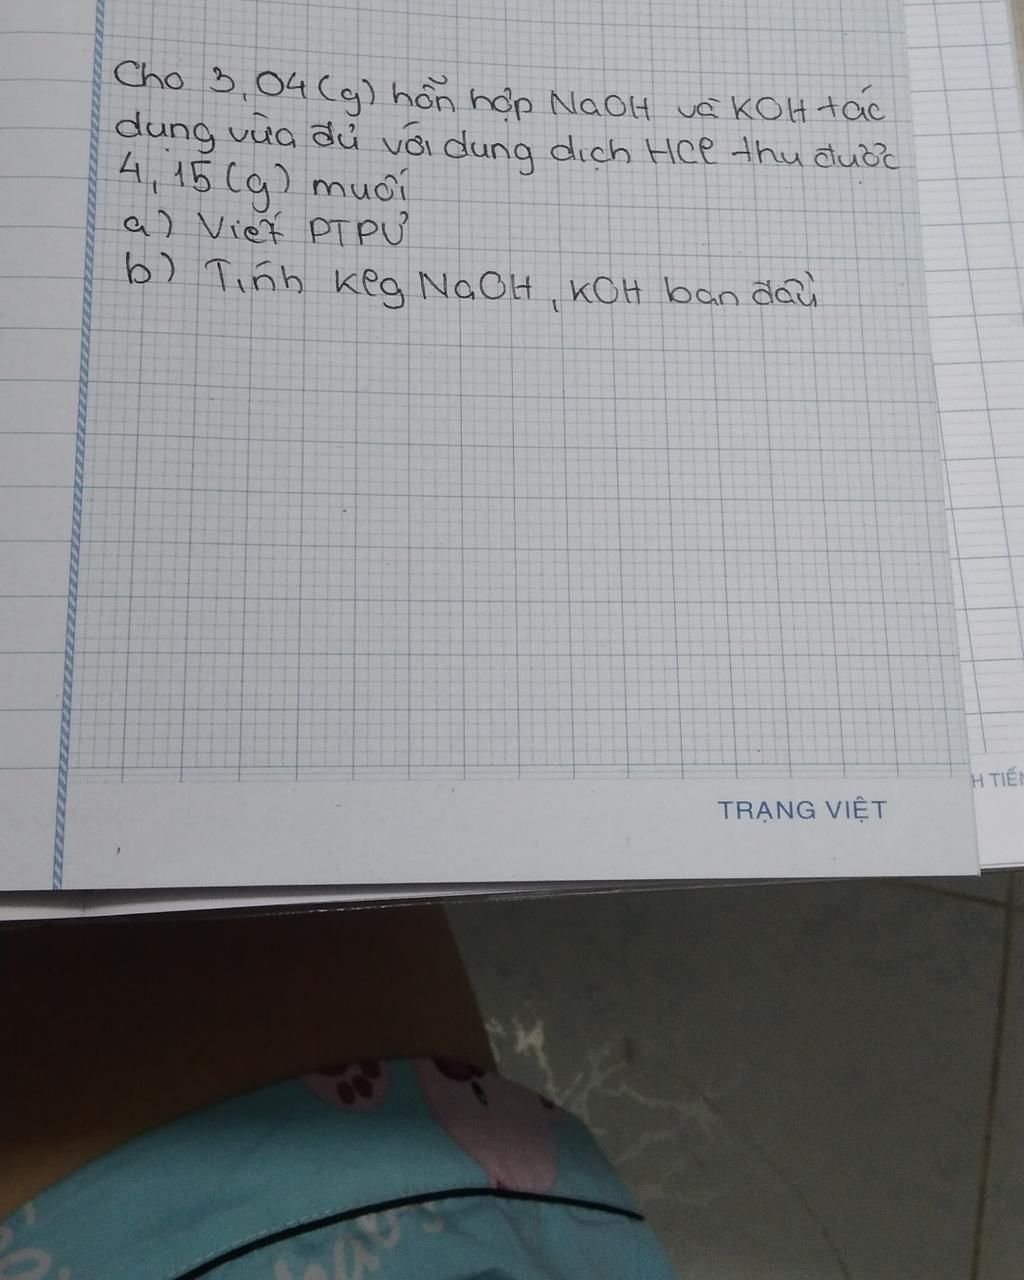 Cho 3,04(g) hỗn hợp NaOH và KOH tác
dụng vừa đủ với dung dịch HCl thu được
4,15(g) muối
a) Viết PTPƯ
b) Tính klg NaOH, KOH ban đầu
H TIẾN
TRẠNG VIỆT